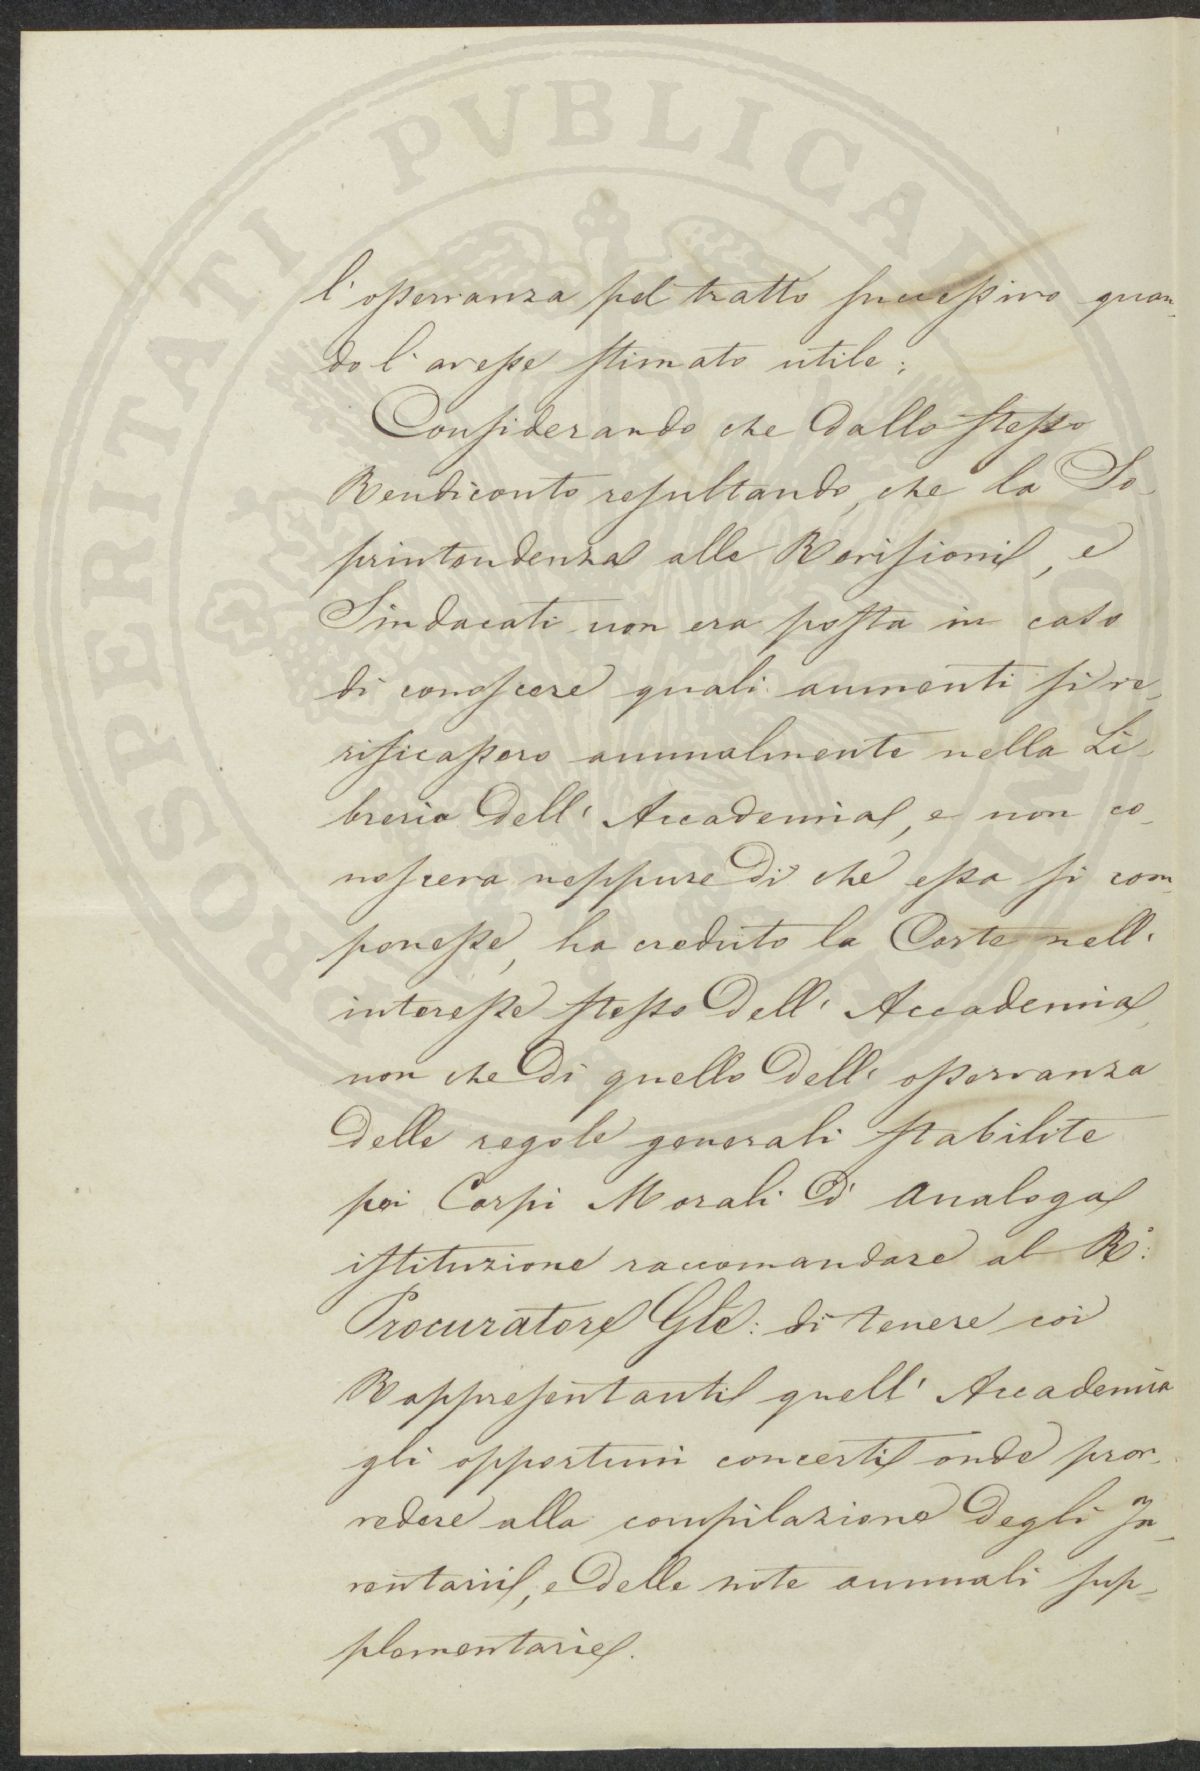 l'osservanza pel tratto successivo quan-
do l'avesse stimato utile;
Considerando che dallo stesso
Rendiconto resultando, che la So-
printendenza alle Revisioni, e
Sindacati non era posta in caso
di conoscere quali aumenti si ve-
rificassero annualmente nella Li-
breria dell'Accademia, e non co-
nosceva neppure di che essa si com-
ponesse, ha creduto la Corte nell'
interesse stesso dell'Accademia,
non che di quello dell'osservanza
delle regole generali stabilite
pei Corpi Morali d'analoga
istituzione raccomandare al R:
Procuratore Gle: di tenere coi
Rappresentanti quell'Accademia
gli opportuni concerti onde prov-
vedere alla compilazione degli In-
ventarii, e delle note annuali sup-
plementarie.
PROSPERITATI PVBLICAE